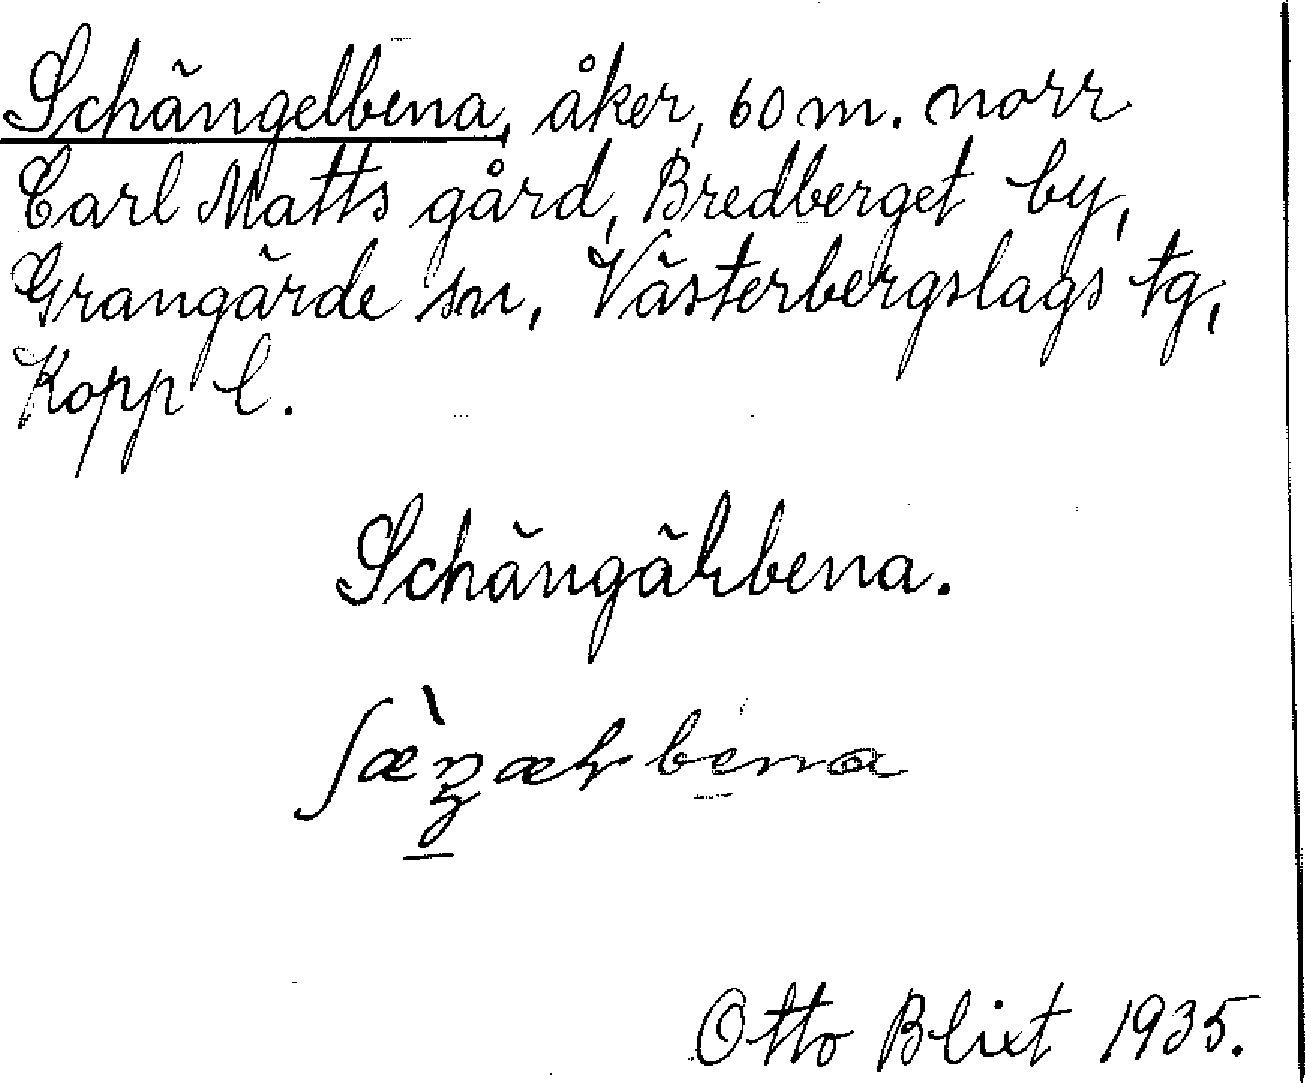 Schängelbena, åker, 60 m. norr
Carl Matts gård, Bredberget by,
Grangärde sn, Västerbergslags tg,
Kopp l.
Schängäɽbena.
Otto Blixt 1935.